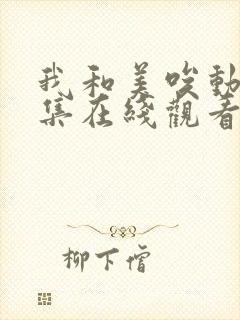 我和美唉動
集在綫觀看
柳下僧